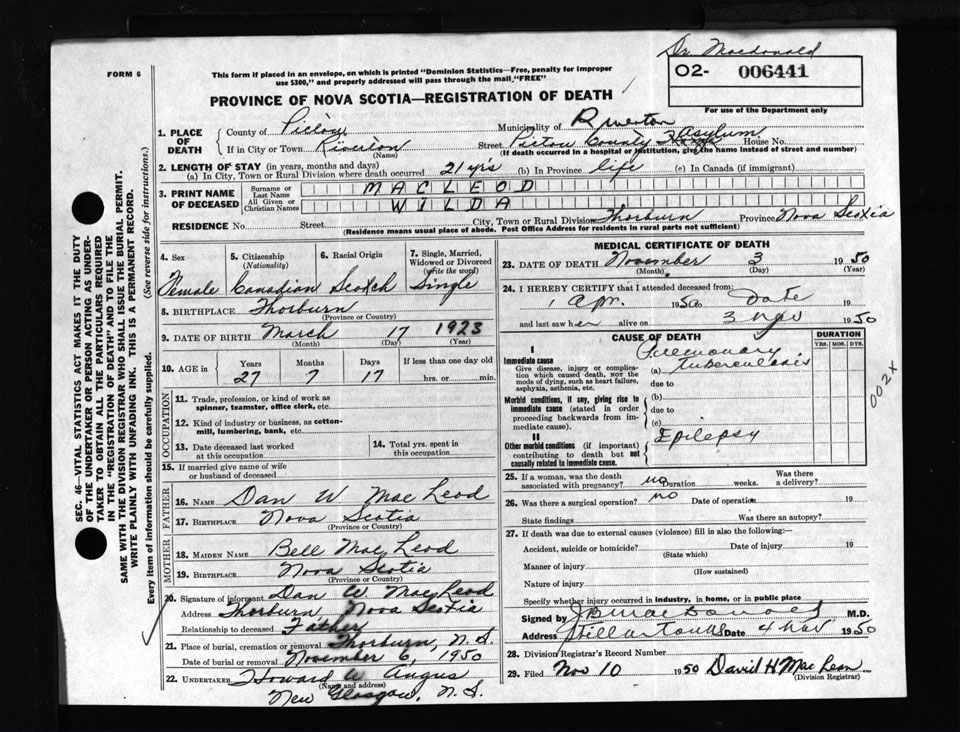 Dr Macdonald
FORM 6
This form if placed in an envelope, on which is printed "Dominion Statistics—Free, penalty for improper
use $300," and properly addressed will pass through the mail, "FREE"
O2- 006441
For use of the Department only
PROVINCE OF NOVA SCOTIA—REGISTRATION OF DEATH
1. PLACE OF DEATH
County of Pictou Municipality of Riverton
If in City or Town Riverton (Name) Street Pictou County Asylum House No.
(If death occurred in a hospital or institution, give the name instead of street and number)
2. LENGTH OF STAY (in years, months and days)
(a) In City, Town or Rural Division where death occurred 21 yrs (b) In Province life (c) In Canada (if immigrant)
3. PRINT NAME OF DECEASED
Surname or Last Name MACLEOD
All Given or Christian Names WILDA
RESIDENCE No. Street City, Town or Rural Division Thorburn Province Nova Scotia
(Residence means usual place of abode. Post Office Address for residents in rural parts not sufficient)
4. Sex Female
5. Citizenship (Nationality) Canadian
6. Racial Origin Scotch
7. Single, Married, Widowed or Divorced (write the word) Single
8. BIRTHPLACE Thorburn
(Province or Country)
9. DATE OF BIRTH March 17 1923
(Month) (Day) (Year)
10. AGE in Years 27 Months 7 Days 17 If less than one day old hrs. or min.
OCCUPATION
11. Trade, profession, or kind of work as spinner, teamster, office clerk, etc.
12. Kind of industry or business, as cotton-mill, lumbering, bank, etc.
13. Date deceased last worked at this occupation
14. Total yrs. spent in this occupation
15. If married give name of wife or husband of deceased
FATHER
16. NAME Dan W. MacLeod
17. BIRTHPLACE Nova Scotia
(Province or Country)
MOTHER
18. MAIDEN NAME Bell MacLeod
19. BIRTHPLACE Nova Scotia
(Province or Country)
20. Signature of informant Dan W. MacLeod
Address Thorburn, Nova Scotia
Relationship to deceased Father
21. Place of burial, cremation or removal Thorburn, N.S.
Date of burial or removal November 6, 1950
22. UNDERTAKER Howard W. Angus
(Name and address)
New Glasgow, N.S.
MEDICAL CERTIFICATE OF DEATH
23. DATE OF DEATH November 3 1950
(Month) (Day) (Year)
24. I HEREBY CERTIFY that I attended deceased from:
1 Apr. 1950 to Date 19
and last saw her alive on 3 Nov 1950
CAUSE OF DEATH
DURATION
YRS. MOS. DYS.
I
Immediate cause
Give disease, injury or complication which caused death, NOT the mode of dying, such as heart failure, asphyxia, asthenia, etc.
(a) Pulmonary tuberculosis
due to
Morbid conditions, if any, giving rise to immediate cause (stated in order proceeding backwards from immediate cause).
(b)
due to
(c)
II
Other morbid conditions (if important) contributing to death but not causally related to immediate cause.
Epilepsy
002x
25. If a woman, was the death associated with pregnancy? no Duration weeks. Was there a delivery?
26. Was there a surgical operation? no Date of operation 19
State findings Was there an autopsy?
27. If death was due to external causes (violence) fill in also the following:—
Accident, suicide or homicide? Date of injury 19
(State which)
Manner of injury
(How sustained)
Nature of injury
Specify whether injury occurred in industry, in home, or in public place
Signed by M.D.
Address Date 4 Nov 1950
28. Division Registrar's Record Number
29. Filed Nov 10 1950 David H MacLean
(Division Registrar)
SEC. 46—VITAL STATISTICS ACT MAKES IT THE DUTY
OF THE UNDERTAKER OR PERSON ACTING AS UNDER-
TAKER TO OBTAIN ALL THE PARTICULARS REQUIRED
IN THE "REGISTRATION OF DEATH" AND TO FILE THE
SAME WITH THE DIVISION REGISTRAR WHO SHALL ISSUE THE BURIAL PERMIT.
WRITE PLAINLY WITH UNFADING INK. THIS IS A PERMANENT RECORD.
Every item of information should be carefully supplied. (See reverse side for instructions.)